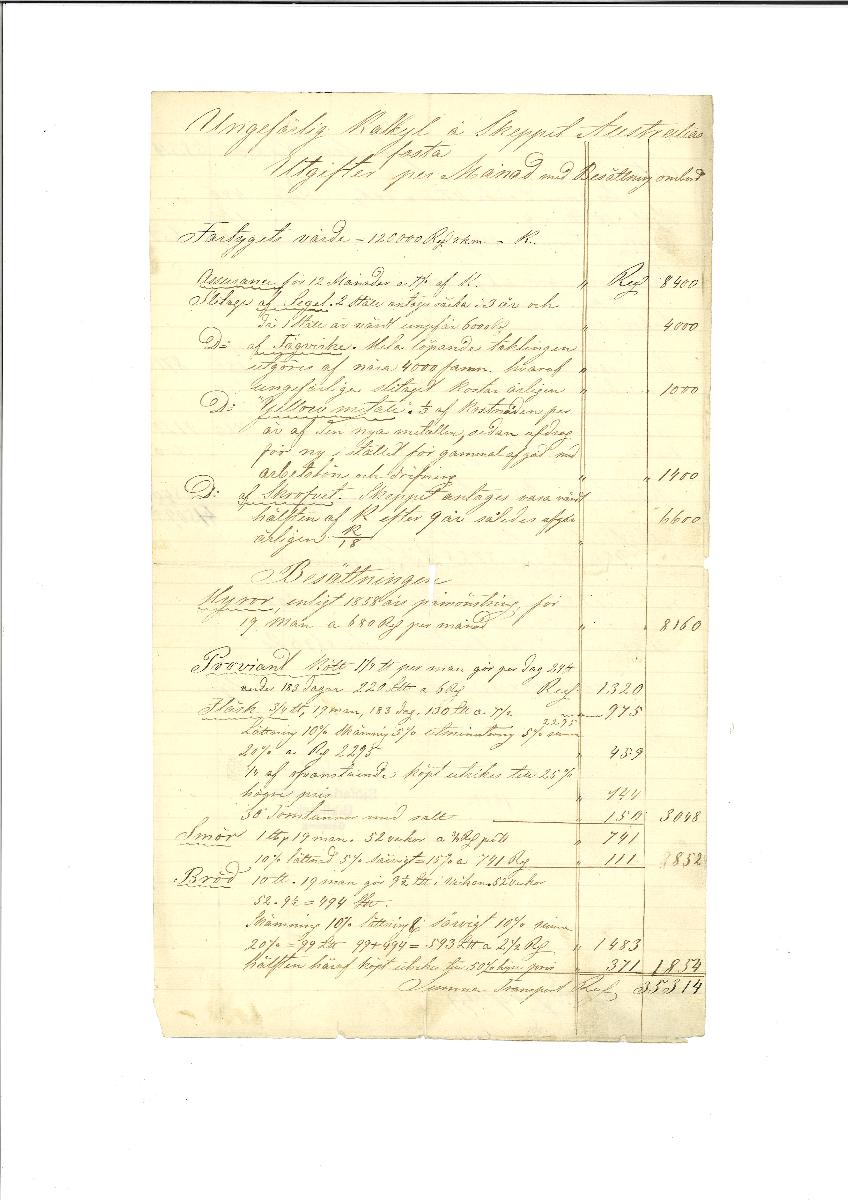 Ungefärlig Kalkyl å Skeppet Australias
fasta
Utgifter per Månad med Besättning ombord
Fartygets värde - 120000 Rg - K.
Assurance för 12 Månader a 7% af K. " Rg 8400
Slitage af Segel. 2 ställ antages räcka i 3 år och
då 1 ställ är värdt ungefär 6000 " 4000
Do af Tågvirke. Hela löpande taklingen
utgöres af nära 4000 famn. hvaraf "
ungefärliga slitaget kostar årligen " " 1000
Do "Yellow metall". 1/3 af kostnaden per
år af den nya metallen, sedan afdrag
för ny i stället för gammal afgår med
arbetslön och drifning " " 1400
Do af Skrofvet. Skeppet antages vara värdt
hälften af K efter 9 år således afgår 6600
årligen K/18 "
Besättningen
Hyror, enligt 1858 års påmönstring, för
19 Man a 680 Rg per månad " " 8160
Proviant Kött 1 1/4 tt per man gör per dag 24
under 183 dagar 220 Ltt a 6 Rg Rg 1320
Fläsk 3/4 tt, 19 man, 183 dag. 130 Ltt a 7 1/2 " 975
2295
Lättning 10% skämning 5% utminutering 5% summa
20% a Rg 2295 " 459
1/4 af ofvanstående köpt utrikes till 25%
högre pris " 144
30 Tomtunnor med salt " 150 3048
Smör 1 tt p 19 man. 52 veckor a 3/4 Rg " 741
10% lättnad 5% svinn = 15% a 741 Rg " 111 852
Bröd 10 tt. 19 man gör 9 1/2 Ltt i veckan. 52 veckor
52. 9 1/2 = 494 Ltt.
Skämning 10% lättning & svinn 10% summa
20% = 99 Ltt 99+494 = 593 Ltt a 2 1/2 Rg " 1483
hälften häraf köpt utrikes till 50% högre pris " 371 1854
Summa Transport Rg 35314